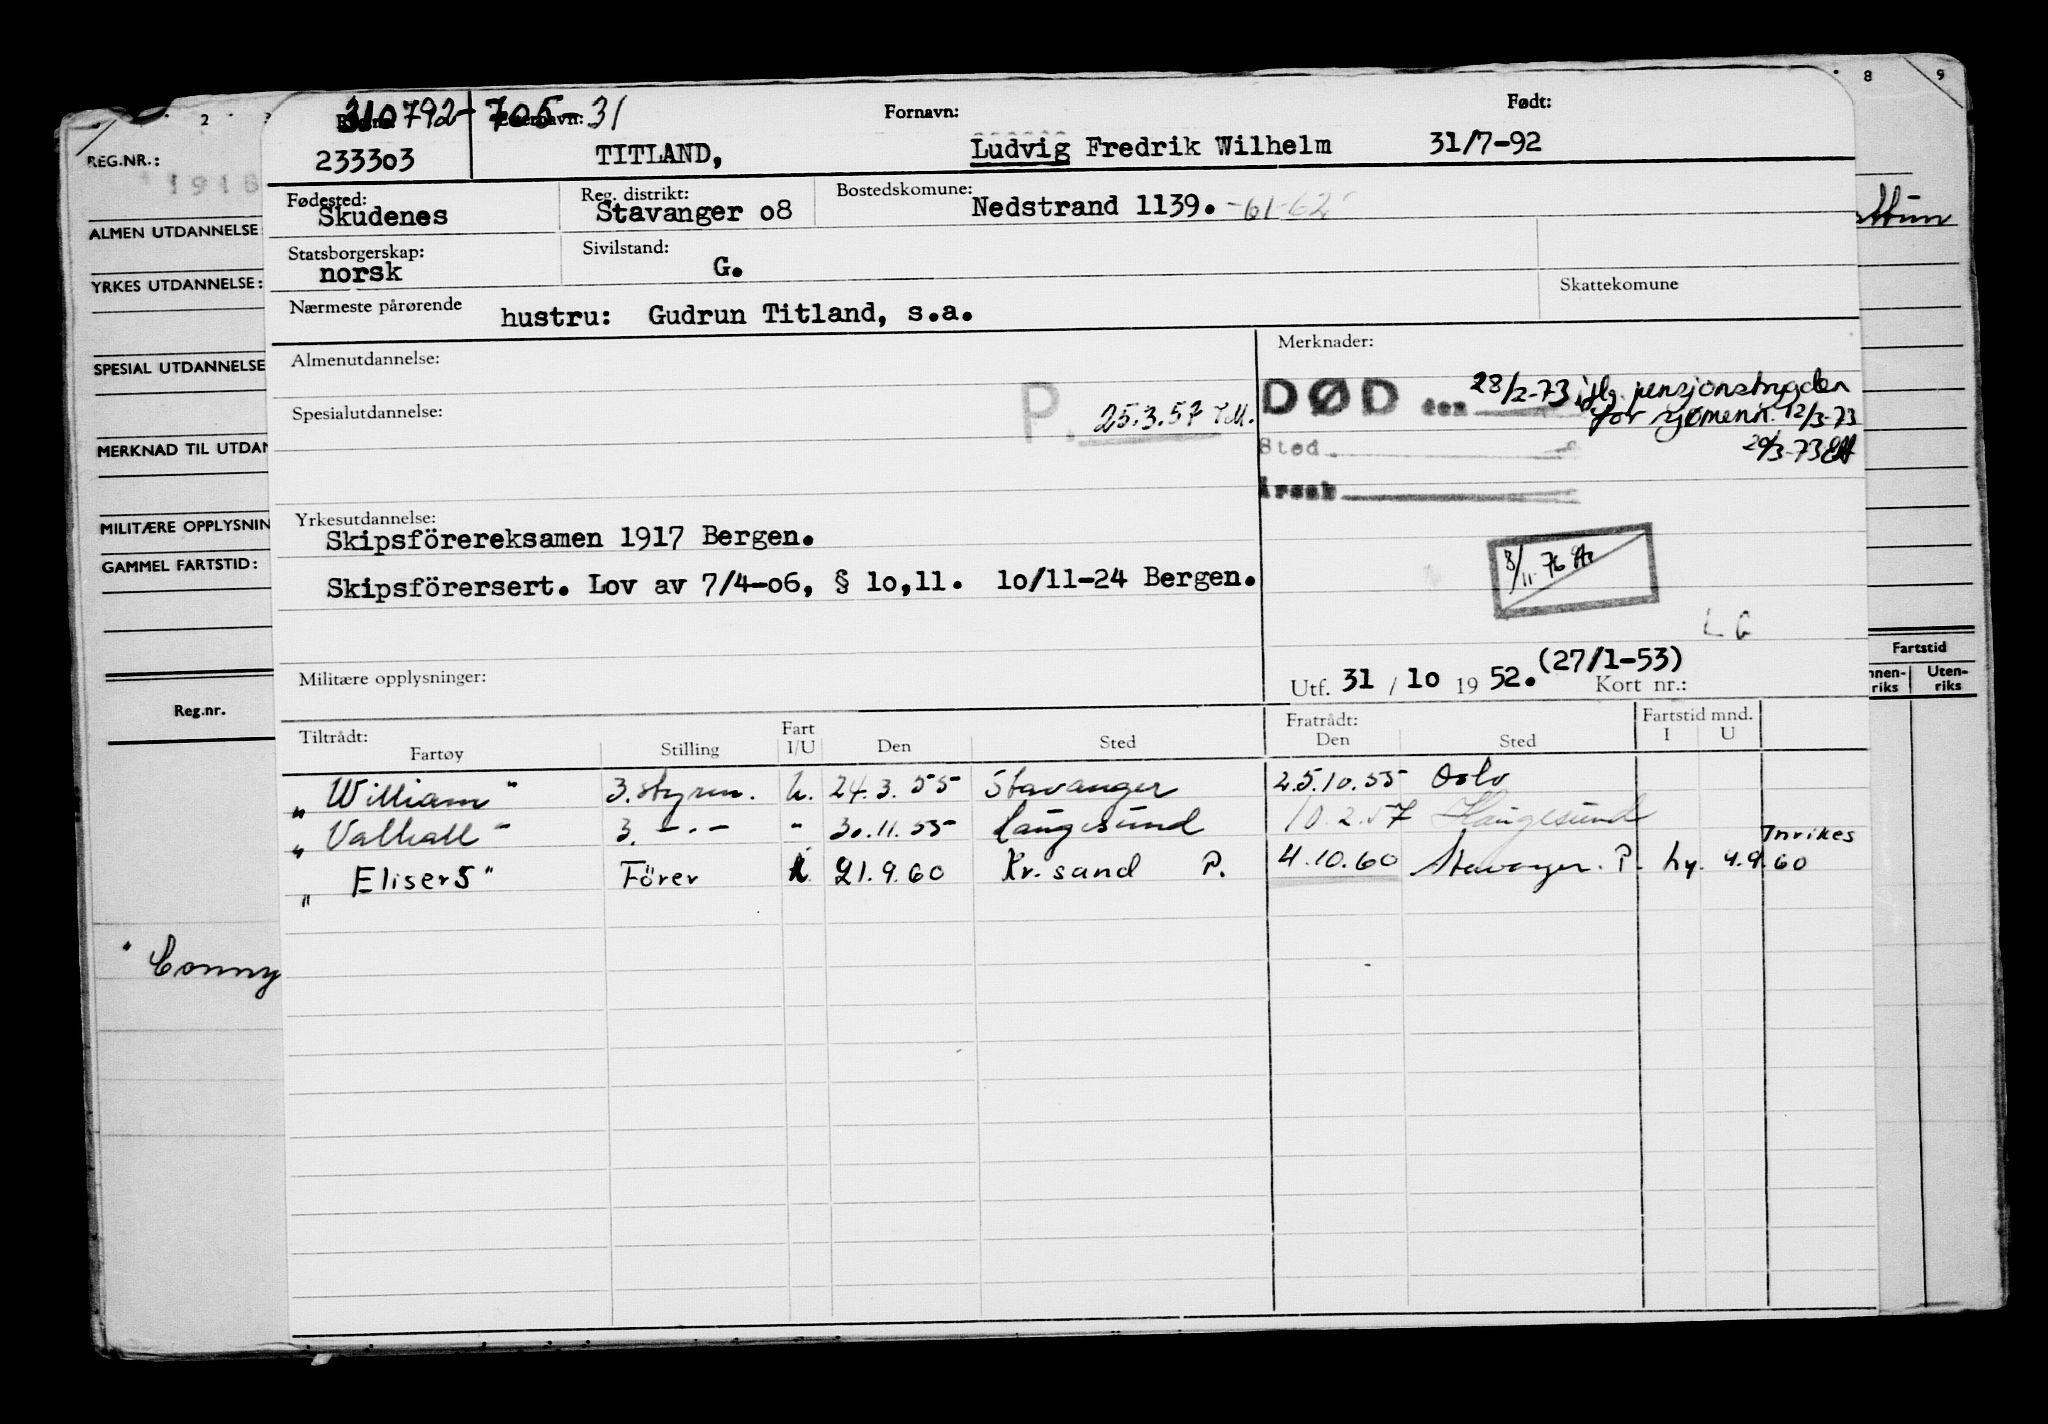 2 3 8 9
310792-705-31
Fornavn: Født:
REG.NR.: 233303 TITLAND, Ludvig Fredrik Wilhelm 31/7-92
1916
Fødested: Reg. distrikt: Bostedskomune:
Skudenes Stavanger o8 Nedstrand 1139. -61-62
ALMEN UTDANNELSE:
Statsborgerskap: Sivilstand:
norsk G.
YRKES UTDANNELSE: Skattekomune
Nærmeste pårørende hustru: Gudrun Titland, s.a.
Almenutdannelse: Merknader:
SPESIAL UTDANNELSE
DØD den 28/2-73 ifg. pensjonstrygden
Spesialutdannelse: P. 25.3.57 for sjømenn. 12/3-73
MERKNAD TIL UTDAN Sted 20/3-73
Årsak
Yrkesutdannelse:
MILITÆRE OPPLYSNIN
Skipsförereksamen 1917 Bergen.
GAMMEL FARTSTID: 8/11-76
Skipsförersert. Lov av 7/4-o6, § lo,11. lo/11-24 Bergen.
L G
Fartstid
Militære opplysninger: Utf. 31 / lo 19 52. (27/1-53)
Kort nr.:
nnen-riks Uten-riks
Reg.nr.
Tiltrådt: Fart Fratrådt: Fartstid mnd.
Fartøy Stilling I/U Den Sted Den Sted I U
"William" 3. styrm. U. 24.3.55 Stavanger 25.10.55 Oslo
"Valhall" 3. -.- " 30.11.55 Haugesund 10.2.57 Haugesund
Inrikes
"Eliser5" Förer 21.9.60 Kr.sand P. 4.10.60 Stavanger. P. hy. 4.9.60
"Conny